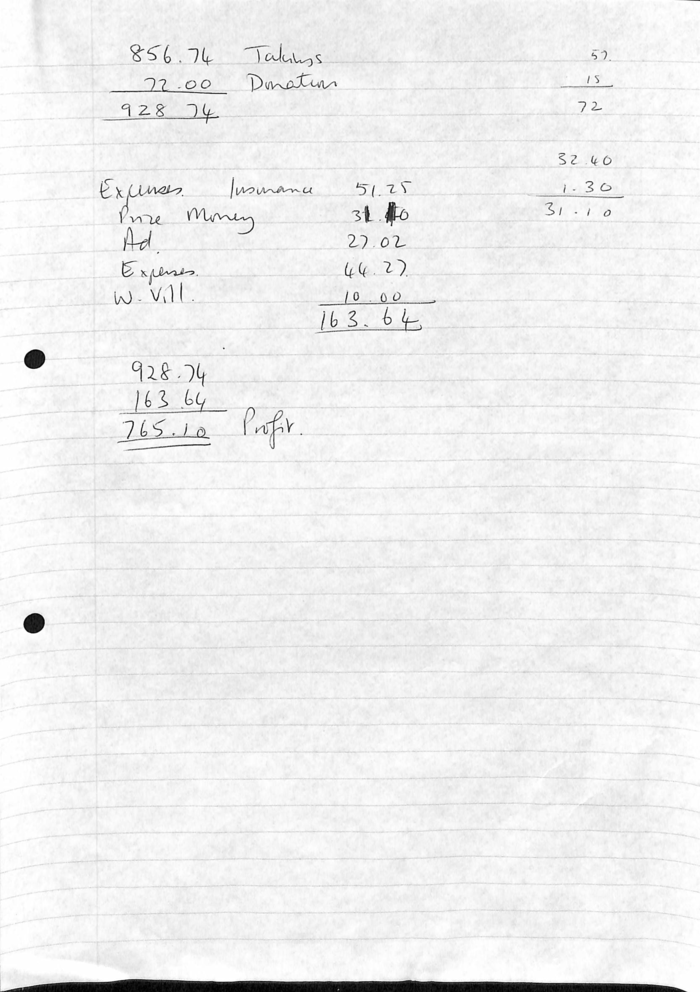 856.74 Takings 57
72.00 Donations 15
928 74 72
32.40
Expenses Insurance 51.25 1.30
Prize Money 31.10 31.10
Ad. 27.02
Expenses. 44.27
W. Vill. 10.00
163.64
928.74
163.64
765.10 Profit.